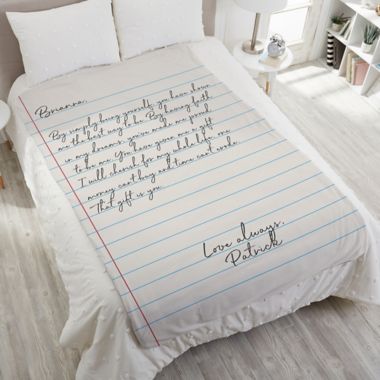 Brianna,
By simply being yourself, you have shown
me the best way to be. By having faith
in my dreams, you've made me proud
to be me. You have given me a gift
I will cherish for my whole life, one
money can't buy and time can't erode.
That gift is you.
Love always,
Patrick